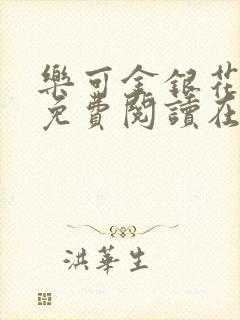 樂可金銀花
免費閱讀在
洪華生